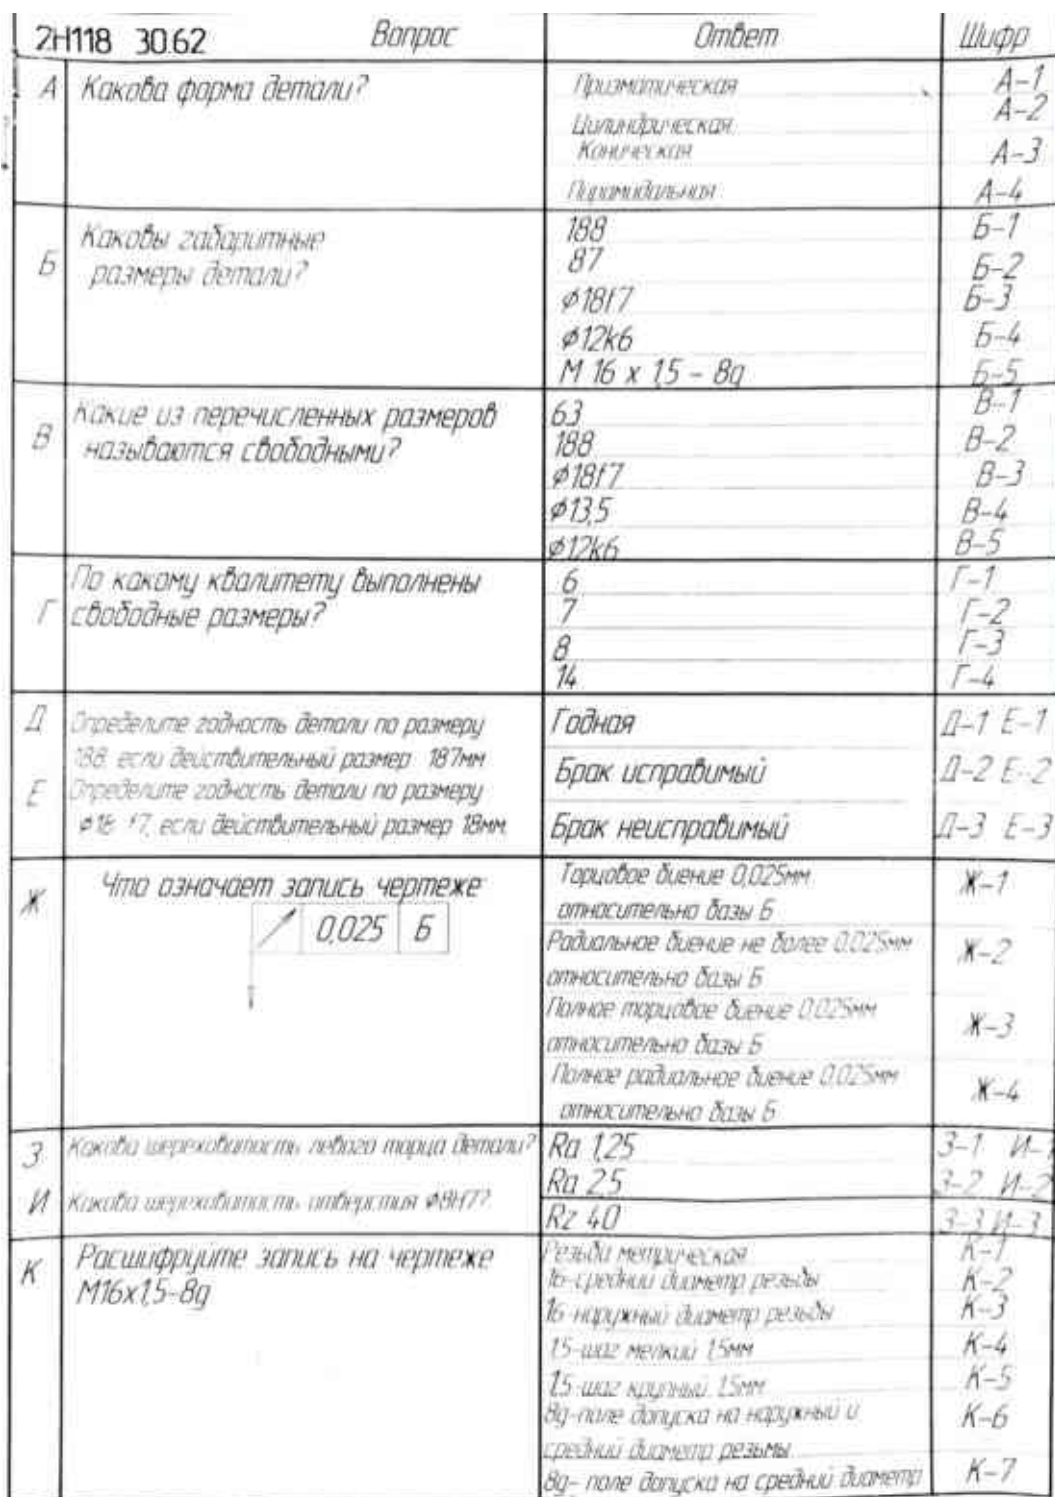 2Н118 30.62 Вопрос Ответ Шифр
А Какова форма детали? Призматическая А-1
Цилиндрическая А-2
Коническая А-3
Пирамидальная А-4
Б Каковы габаритные размеры детали? 188 Б-1
87 Б-2
⌀18f7 Б-3
⌀12k6 Б-4
М 16 х 1,5 - 8g Б-5
В Какие из перечисленных размеров называются свободными? 63 В-1
188 В-2
⌀18f7 В-3
⌀13,5 В-4
⌀12k6 В-5
Г По какому квалитету выполнены свободные размеры? 6 Г-1
7 Г-2
8 Г-3
14 Г-4
Д Определите годность детали по размеру
188, если действительный размер 187мм
Е Определите годность детали по размеру
⌀18 f7, если действительный размер 18мм
Годная Д-1 Е-1
Брак исправимый Д-2 Е-2
Брак неисправимый Д-3 Е-3
Ж Что означает запись чертеже
0,025 Б
Торцовое биение 0,025мм
относительно базы Б Ж-1
Радиальное биение не более 0,025мм
относительно базы Б Ж-2
Полное торцовое биение 0,025мм
относительно базы Б Ж-3
Полное радиальное биение 0,025мм
относительно базы Б Ж-4
З Какова шероховатость левого торца детали?
И Какова шероховатость отверстия ⌀8Н7?
Ra 1,25 З-1 И-1
Ra 2,5 З-2 И-2
Rz 40 З-3 И-3
К Расшифруйте запись на чертеже
М16х1,5-8g
Резьба метрическая К-1
16-средний диаметр резьбы К-2
16-наружный диаметр резьбы К-3
1,5-шаг мелкий 1,5мм К-4
1,5-шаг крупный 1,5мм К-5
8g-поле допуска на наружный и К-6
средний диаметр резьмы
8g- поле допуска на средний диаметр К-7